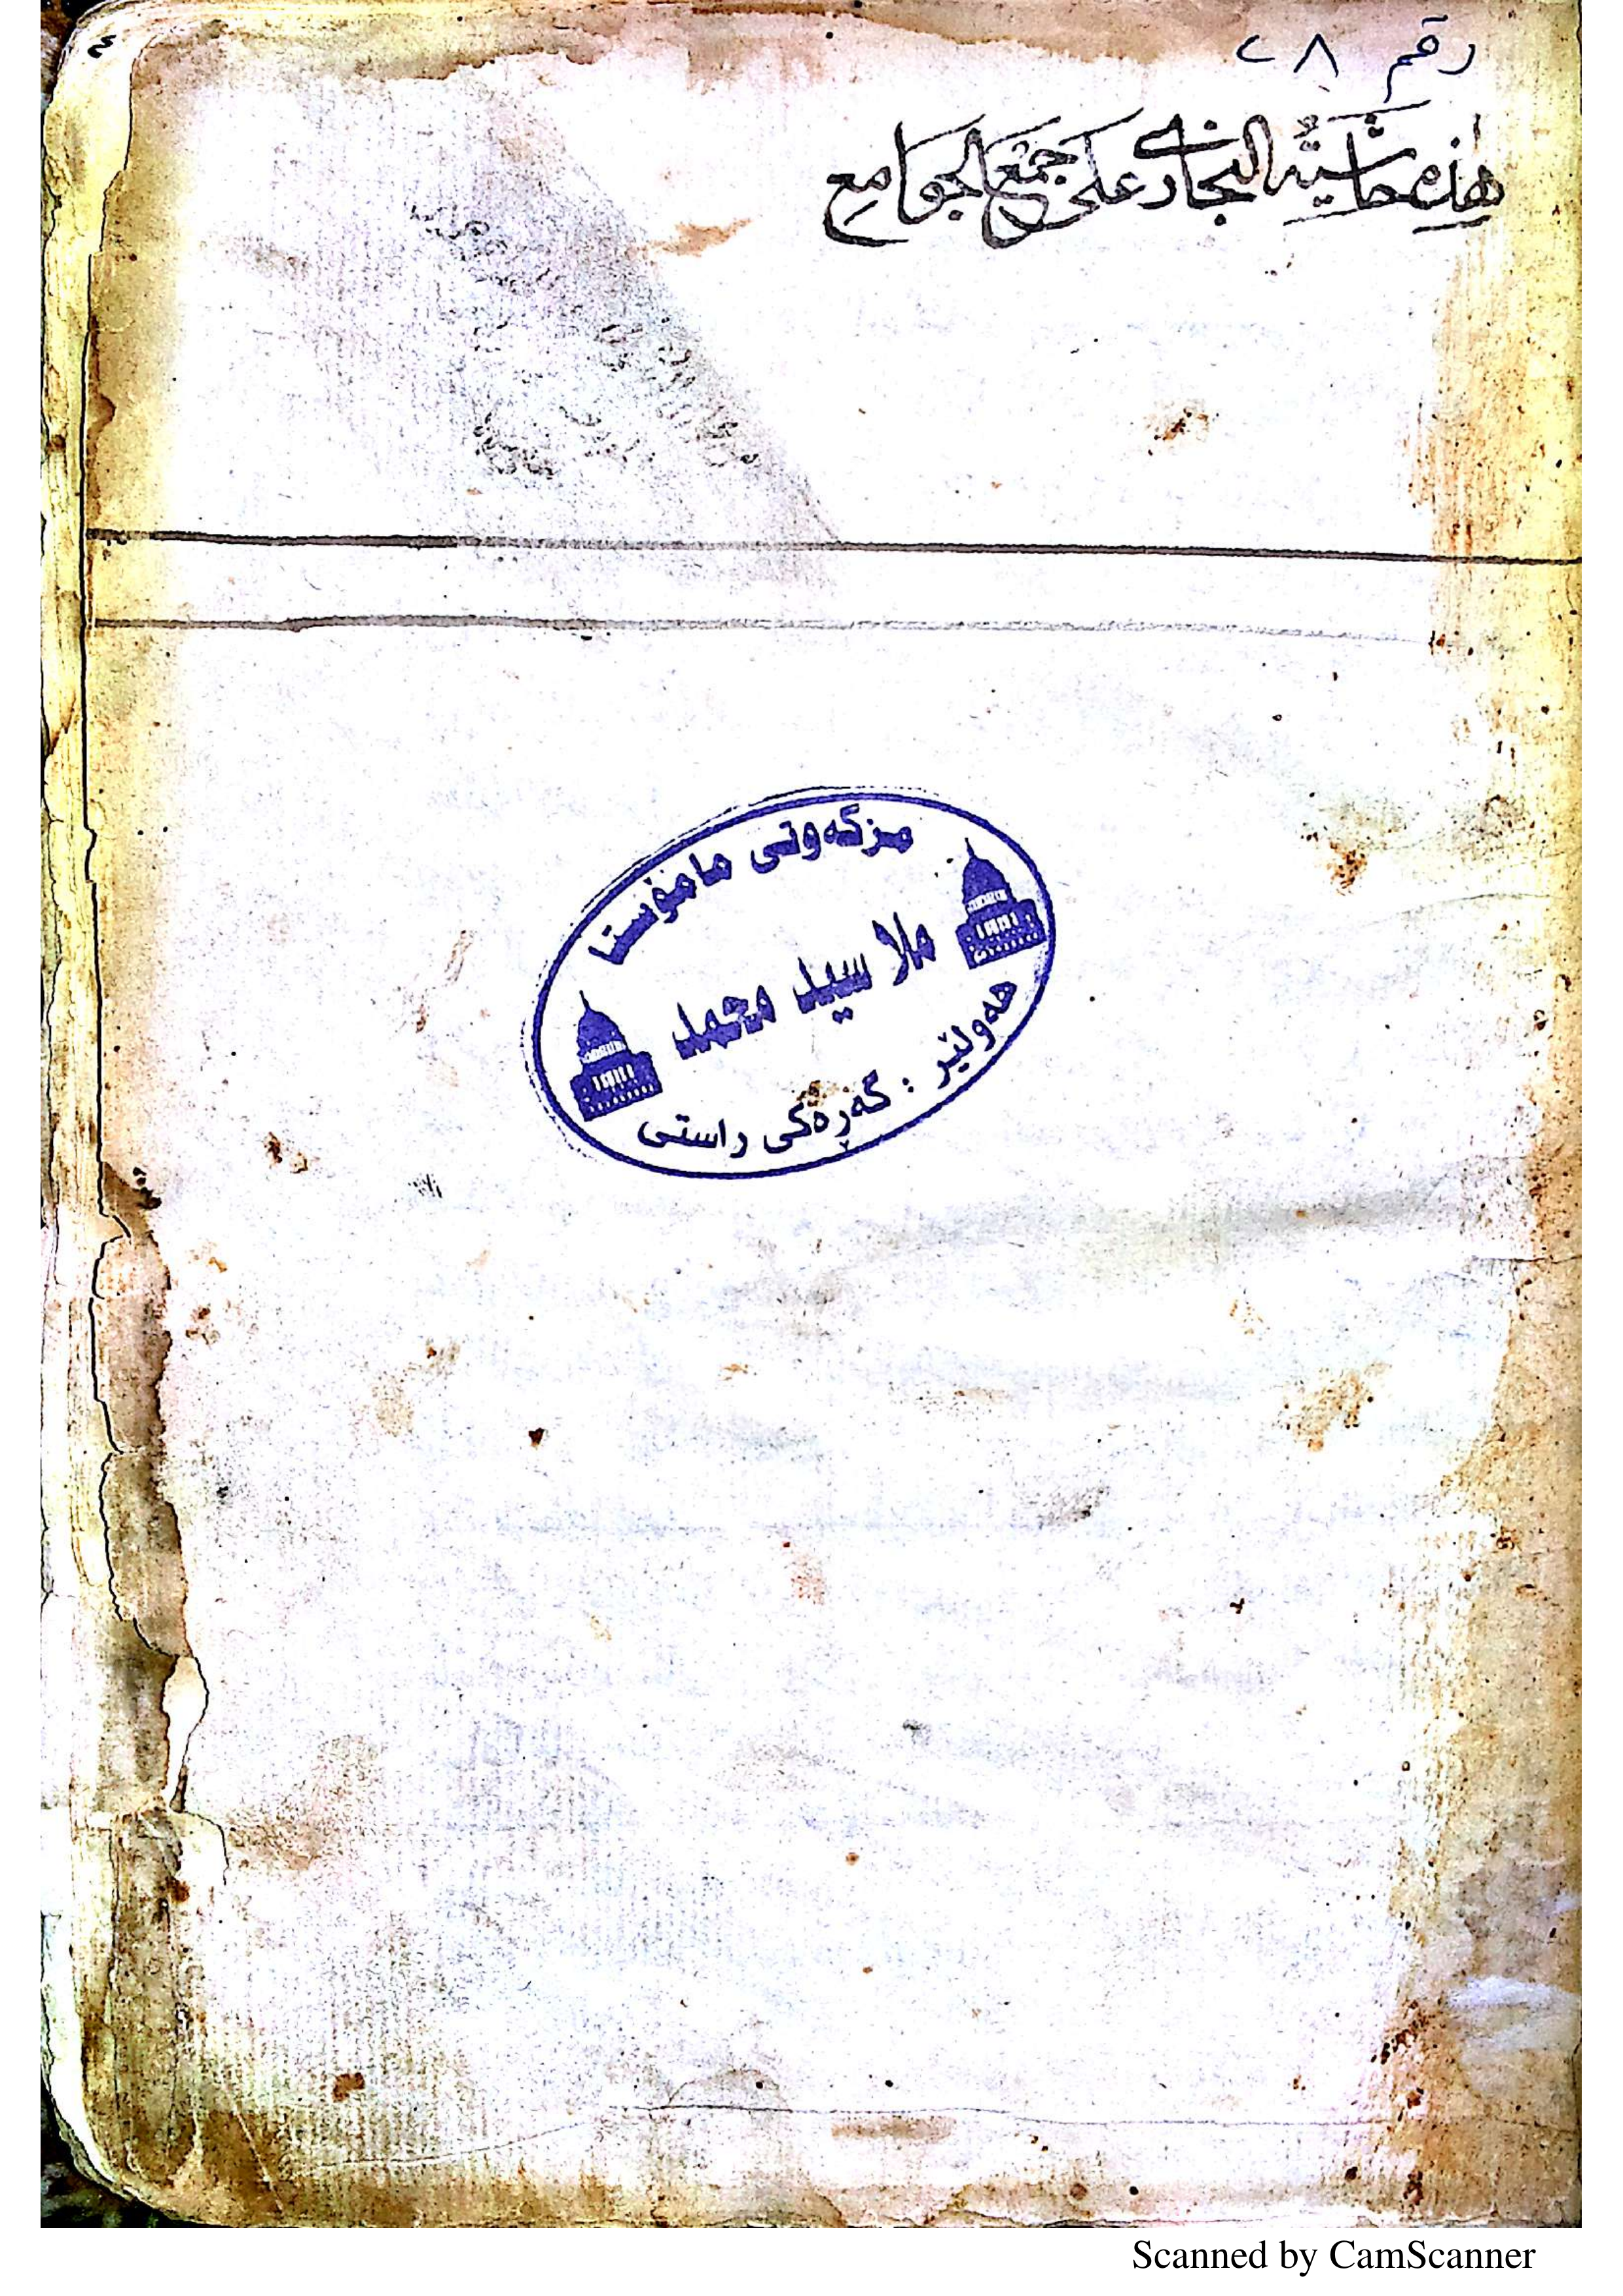 ٤
رقم ٢٨
هذه حاشية النجاري على جمع الجوامع
مزگەوتی مامۆستا
ملا سيد محمد
هەولێر : گەڕەکی راستی
Scanned by CamScanner